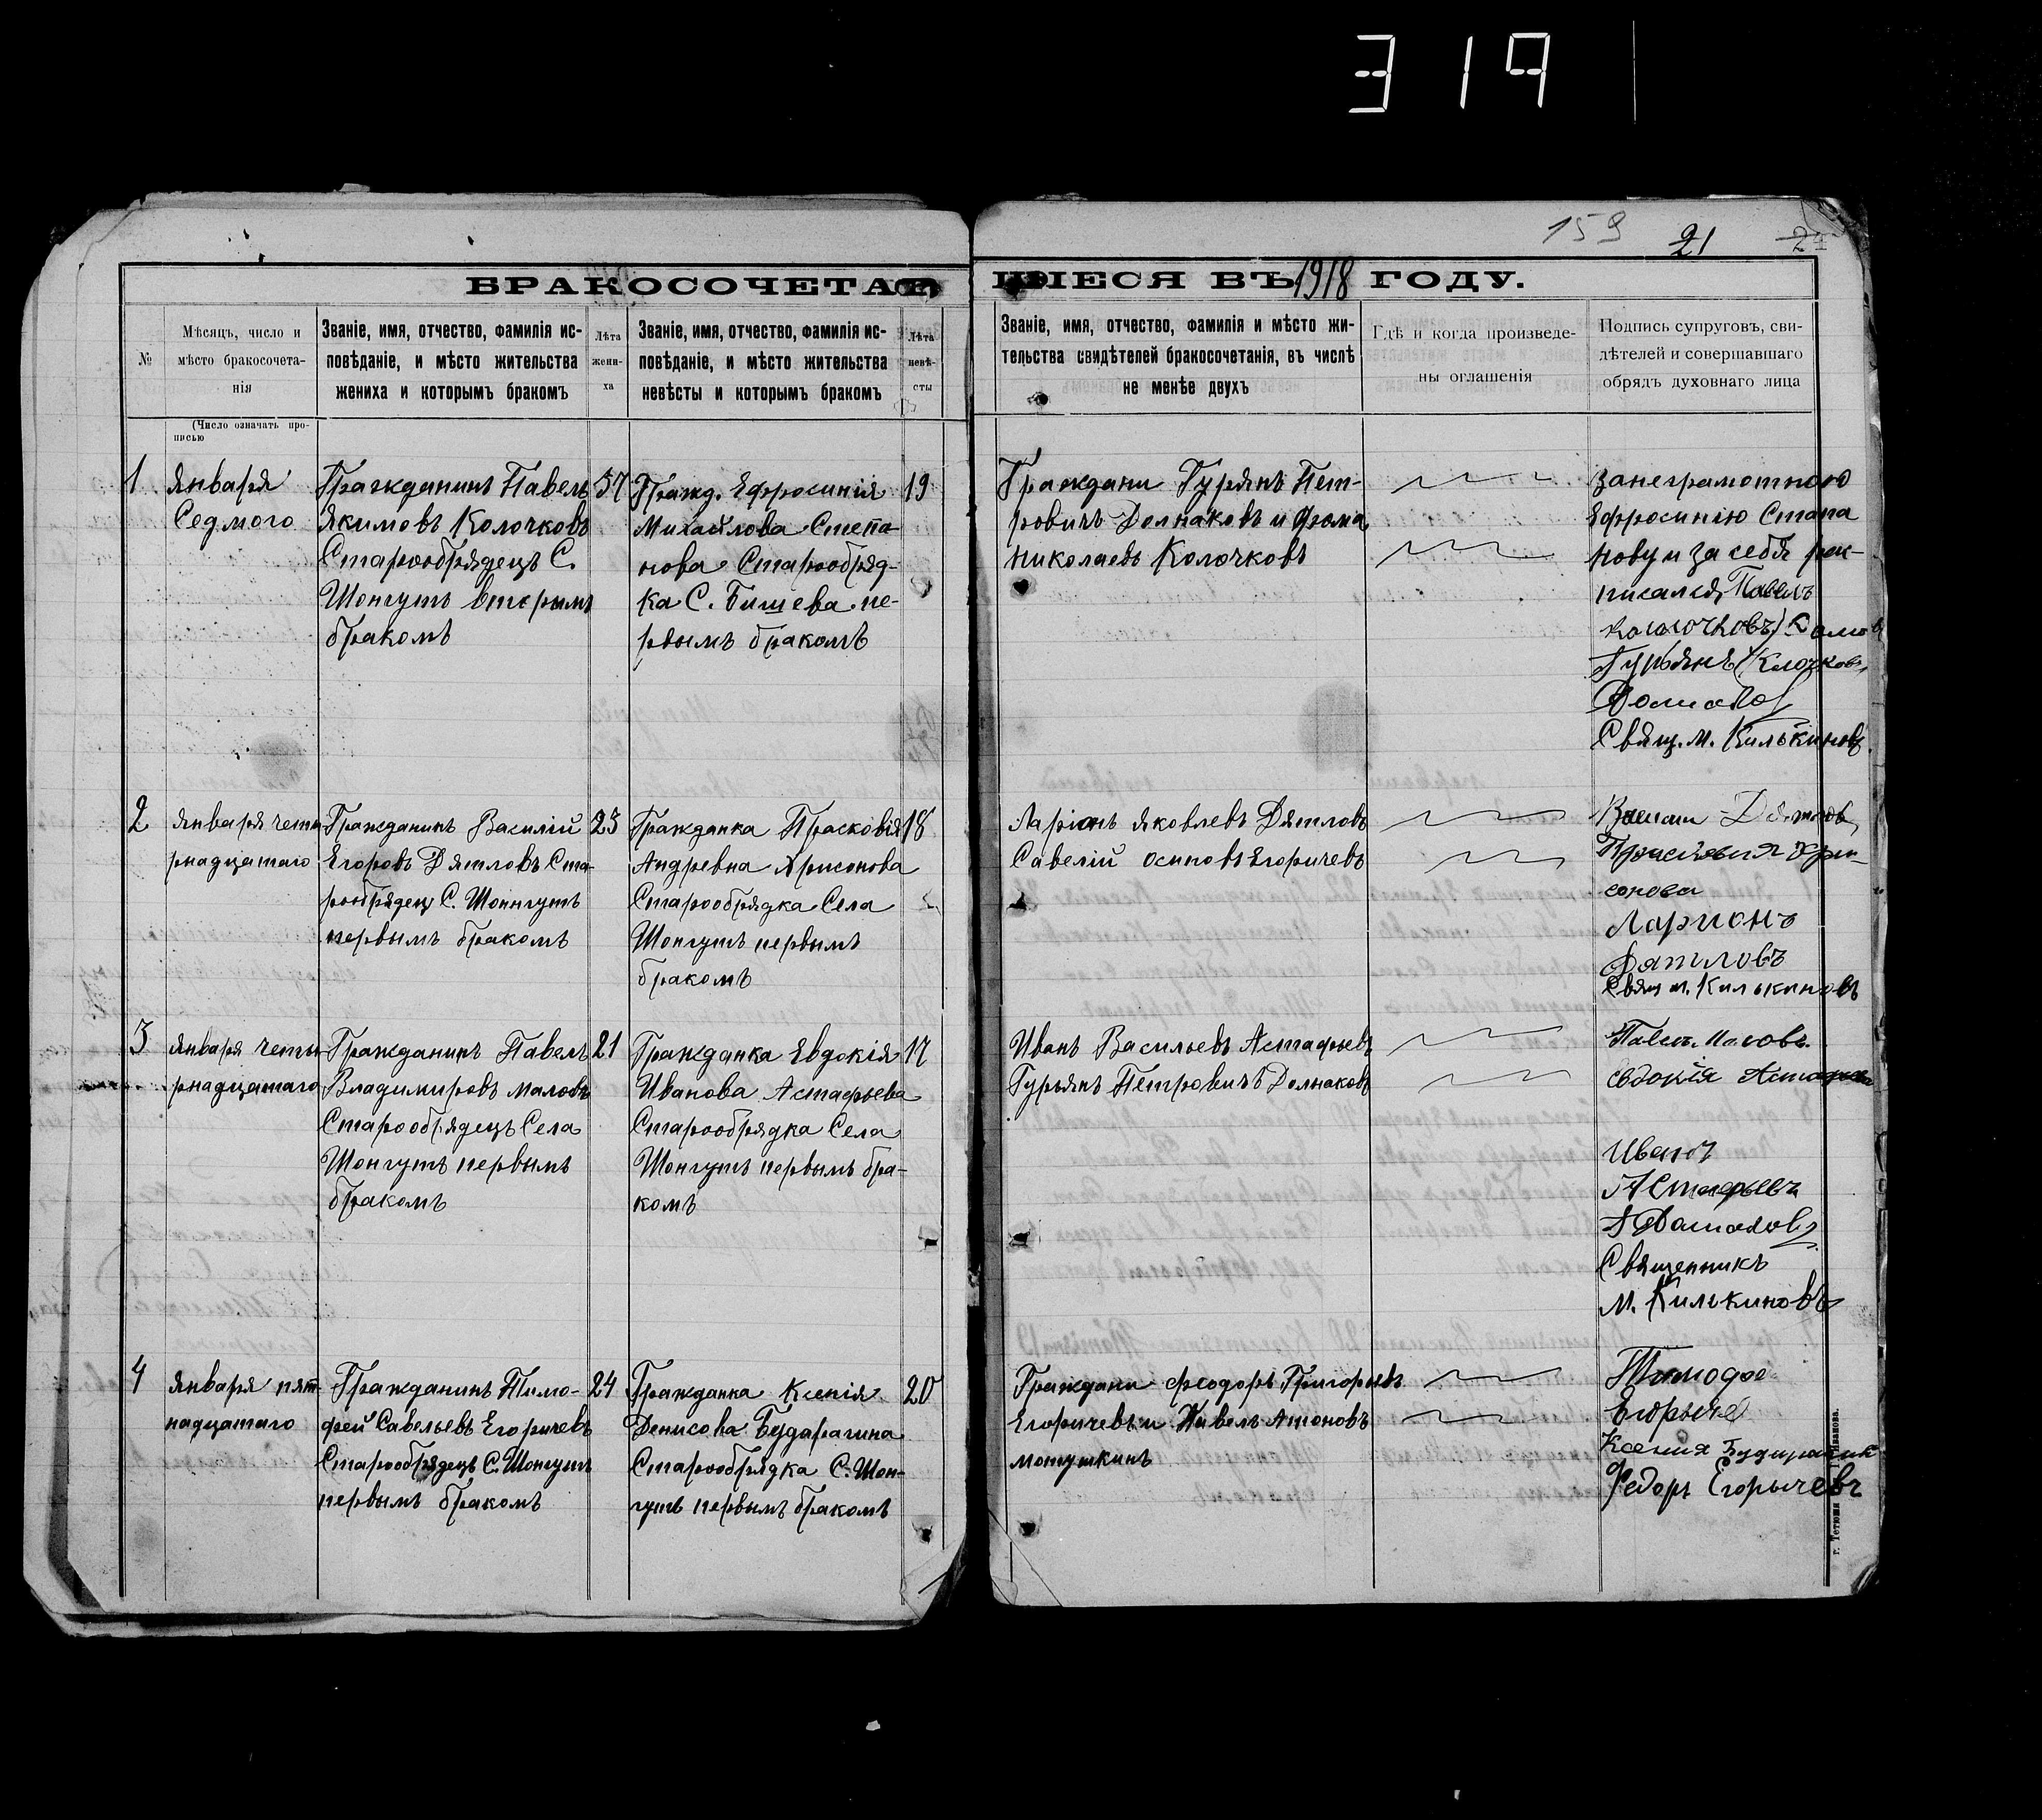 319
159 21 24
БРАКОСОЧЕТАВШІЕСЯ ВЪ 1918 ГОДУ.
№
Мѣсяцъ, число и
мѣсто бракосочета-
нія
(Число означать про-
писью
Званіе, имя, отчество, фамилія ис-
повѣданіе, и мѣсто жительства
жениха и которымъ бракомъ
Лѣта
жени-
ха
Званіе, имя, отчество, фамилія ис-
повѣданіе, и мѣсто жительства
невѣсты и которымъ бракомъ
Лѣта
невѣ-
сты
Званіе, имя, отчество, фамилія и мѣсто жи-
тельства свидѣтелей бракосочетанія, въ числѣ
не менѣе двухъ
Гдѣ и когда произведе-
ны оглашенія
Подпись супруговъ, сви-
дѣтелей и совершавшаго
обрядъ духовнаго лица
1
Января
Седмого
Гражданинъ Павелъ
Якимовъ Колочковъ
Старообрядецъ С.
Шонгутъ вторымъ
бракомъ
37
Гражд. Ефросинія
Михайлова Степа-
нова Старообряд-
ка С. Бишева пе-
рвымъ бракомъ
19
Граждани Гурянъ Пет-
ровичъ Долнаковъ и Фома
Николаевъ Колочковъ
Занеграмотною
Ефросинію Стапа
нову и за себя рас-
писался Павелъ
Колочковъ
Гурьянъ Клочковъ
Свящ. М. Килькиновъ
2
Января четы
рнадцатаго
Гражданинъ Василій
Егоровъ Дятловъ Ста-
рообрядец С. Шонгутъ
первымъ бракомъ
23
Гражданка Прасковія
Андревна Хрисонова
Старообрядка Села
Шонгутъ первымъ
бракомъ
18
Ларіонъ Яковлевъ Дятловъ
Савелій Осиповъ Егоричевъ
Василий Дятлов
Прасковия Хри-
сонова
Ларионъ
Дятловъ
Свящ М. Килькиновъ
3
Января четы
рнадцатаго
Гражданинъ Павелъ
Владимировъ Маловъ
Старообрядецъ Села
Шонгутъ первымъ
бракомъ
21
Гражданка Евдокія
Иванова Астафьева
Старообрядка Села
Шонгутъ первымъ бра-
комъ
17
Иванъ Васильевъ Астафьевъ
Гурьянъ Петровичъ Долнаковъ
Павелъ Маловъ
Евдокія Астафьева
Иванъ
Астафьевъ
Священникъ
М. Килькиновъ
4
Января пят-
надцатаго
Гражданинъ Тимо-
фей Савельевъ Егоричевъ
Старообрядецъ С. Шонгутъ
первымъ бракомъ
24
Гражданка Ксенія
Денисова Бударагина
Старообрядка С. Шон-
гутъ первымъ бракомъ
20
Граждани Феодоръ Григорьевъ
Егоричевъ и Павелъ Атоновъ
Мотушкинъ
Тимофе
Егорыче
Ксения Бударагин
Федоръ Егорычевъ